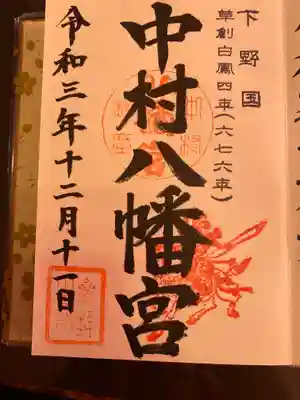 下野国
草創白鳳四年(六七六年)
中村八幡宮
令和三年十二月十一日